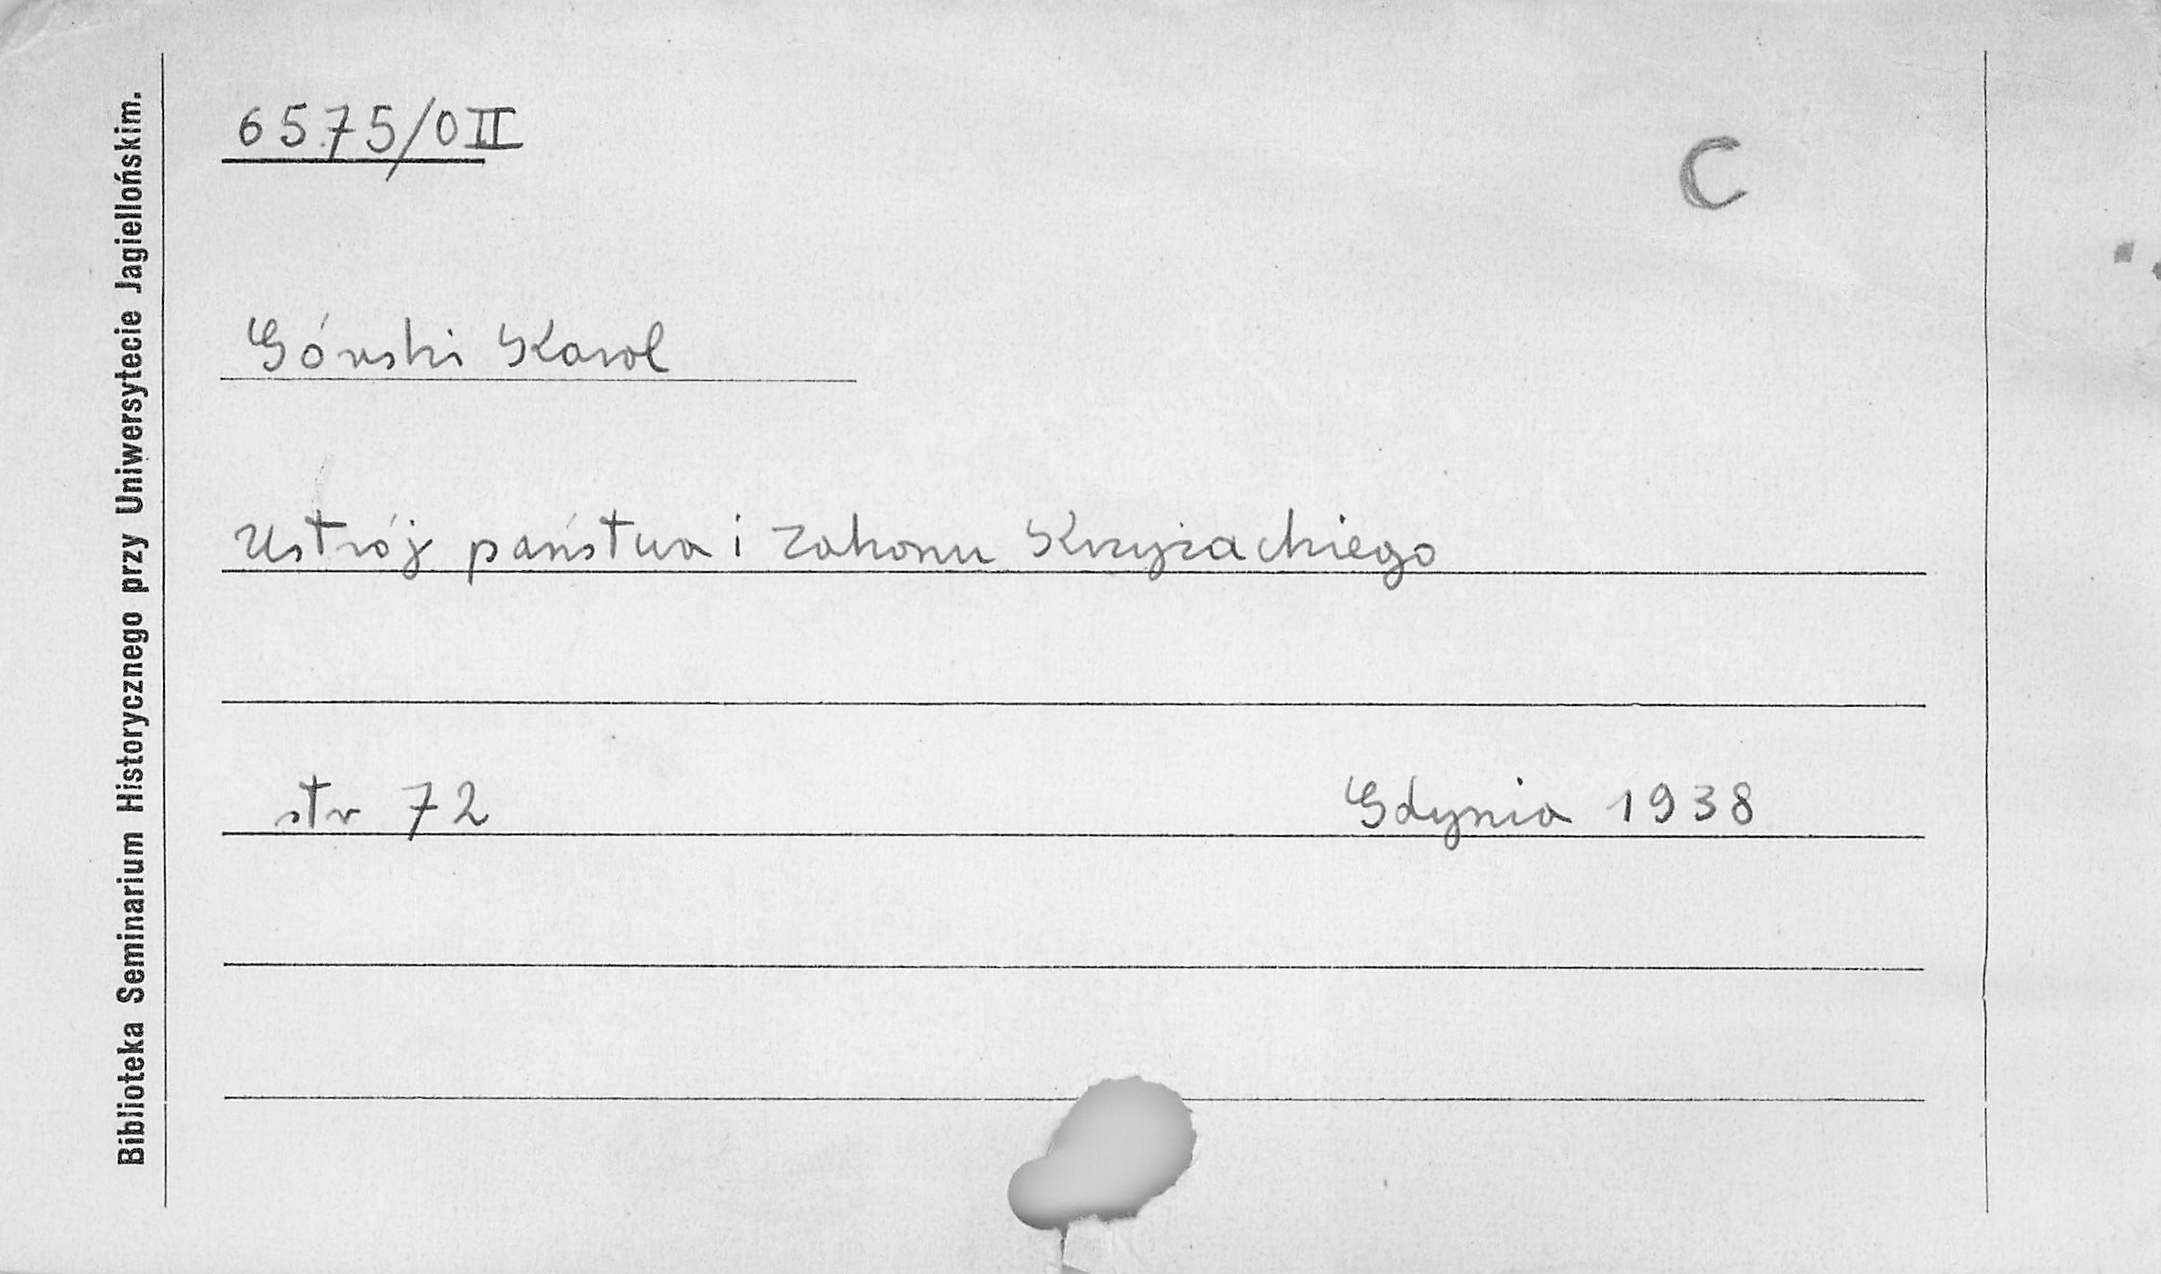 Biblioteka Seminarium Historycznego przy Uniwersytecie Jagiellońskim.
6575/0 II
C
Górski Karol
Ustrój państwa i zakonu Krzyżackiego
str 72 Gdynia 1938